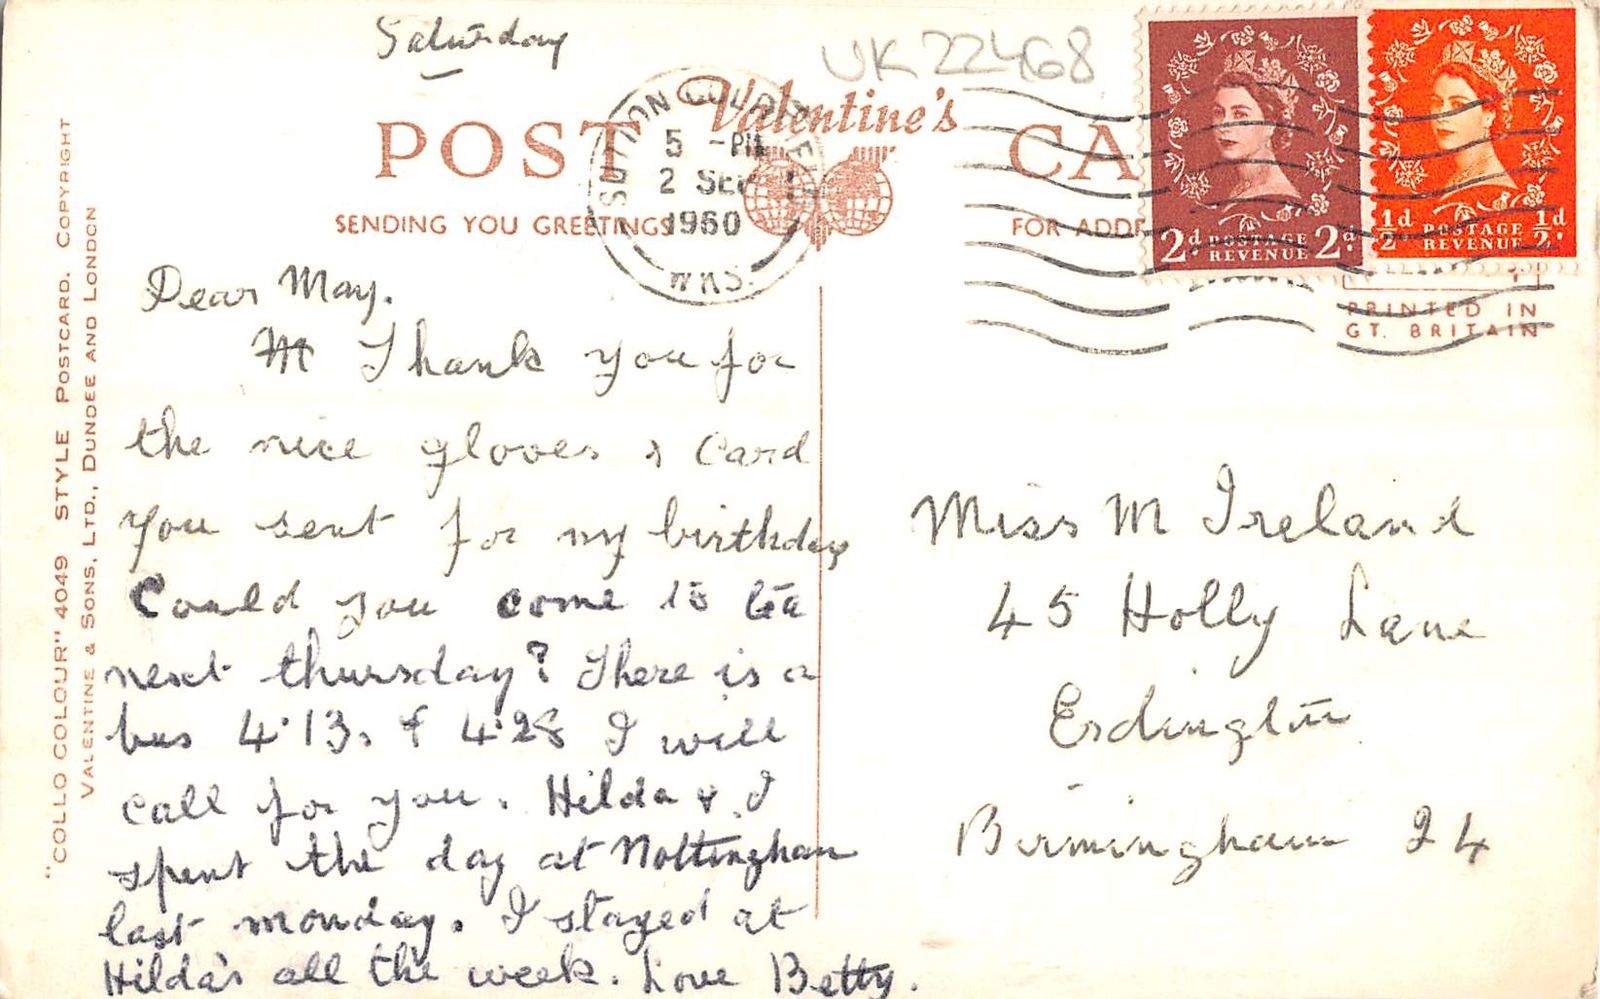 Saturday
UK 22468
Valentine's
POST CA
SENDING YOU GREETINGS
FOR ADDR
SUTTON COLDFIELD
5 - PM
2 SEP
1960
WKS.
2d POSTAGE 2d
REVENUE
½d POSTAGE ½d
REVENUE
PRINTED IN
GT. BRITAIN
"COLLO COLOUR" 4049 STYLE POSTCARD. COPYRIGHT
VALENTINE & SONS, LTD., DUNDEE AND LONDON
Dear May.
Thank you for
the nice gloves & Card
you sent for my birthday
Could you come to tea
next thursday? There is a
bus 4.13. & 4.28 I will
call for you. Hilda & I
spent the day at Nottingham
last monday. I stayed at
Hilda's all the week. Love Betty.
Miss M Ireland
45 Holly Lane
Erdington
Birmingham 24